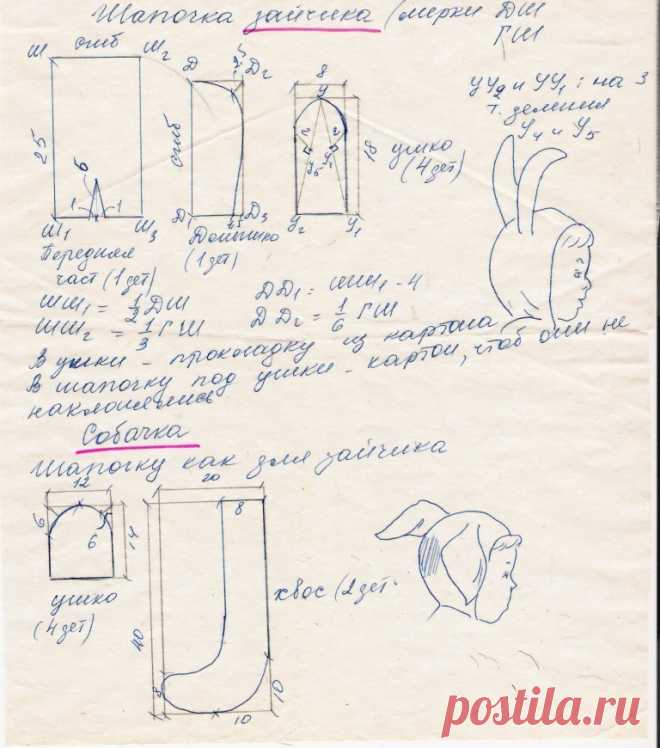 Шапочка зайчика (мерки ДШ
ГШ
Ш сгиб Ш2
25
6
1 1
Ш1 Ш3
Передняя
част (1 дет)
Д Д2
сгиб
Д1 Д3
Донышко
(1 дет)
8
У
18
У2 У1
ушко
(4 дет)
УУ2 и УУ1 : на 3
т. деления
У4 и У5
ШШ1 = ДШ
ШШ2 = 1/3 ГШ
ДД1 = ШШ1 - 4
ДД2 = 1/6 ГШ
В ушки - прокладку из картона
В шапочку под ушки - картон, чтоб они не
наклонялись
Собачка
Шапочку как для зайчика
12
6
6
14
ушко
(4 дет)
20
8
40
8
10
10
хвос (2 дет.
postila.ru